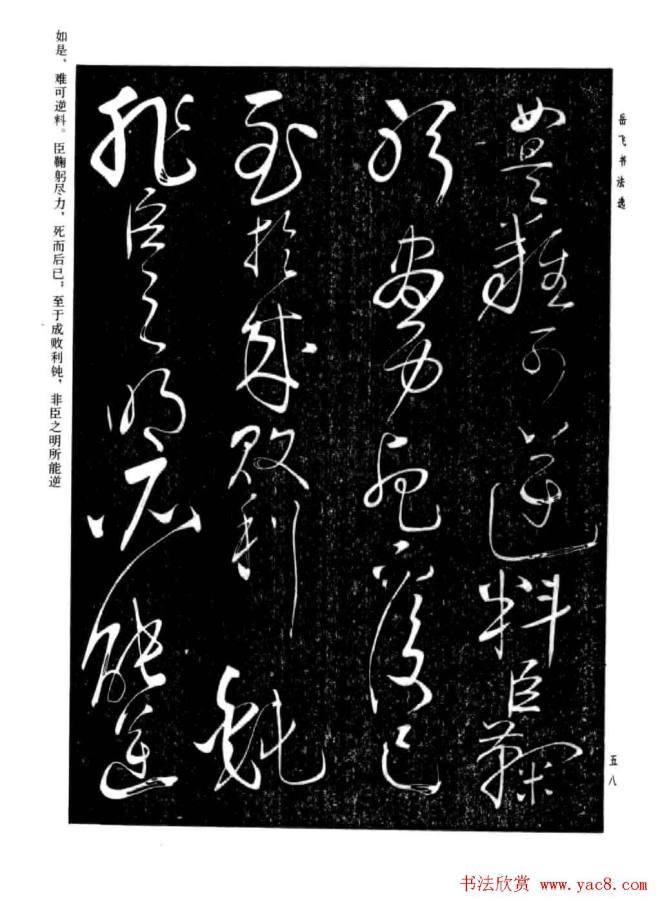 岳飞书法选
如是難可逆料臣鞠
躬盡力死而後已
至於成敗利鈍
非臣之明所能逆
如是，难可逆料。臣鞠躬尽力，死而后已，至于成败利钝，非臣之明所能逆
五八
书法欣赏 www.yac8.com